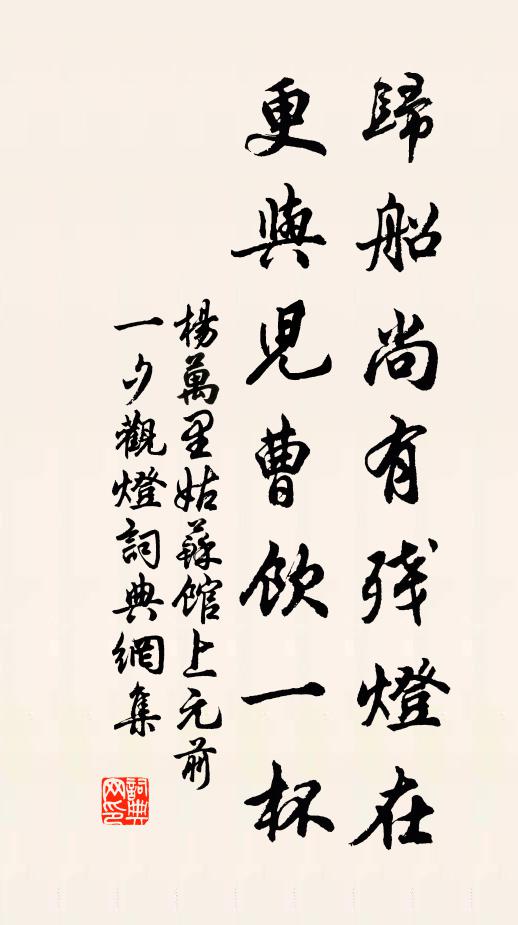 歸船尚有殘燈在
更與兒曹飲一杯
楊萬里姑蘇館上元前
一夕觀燈詞典網集
詞典
网印